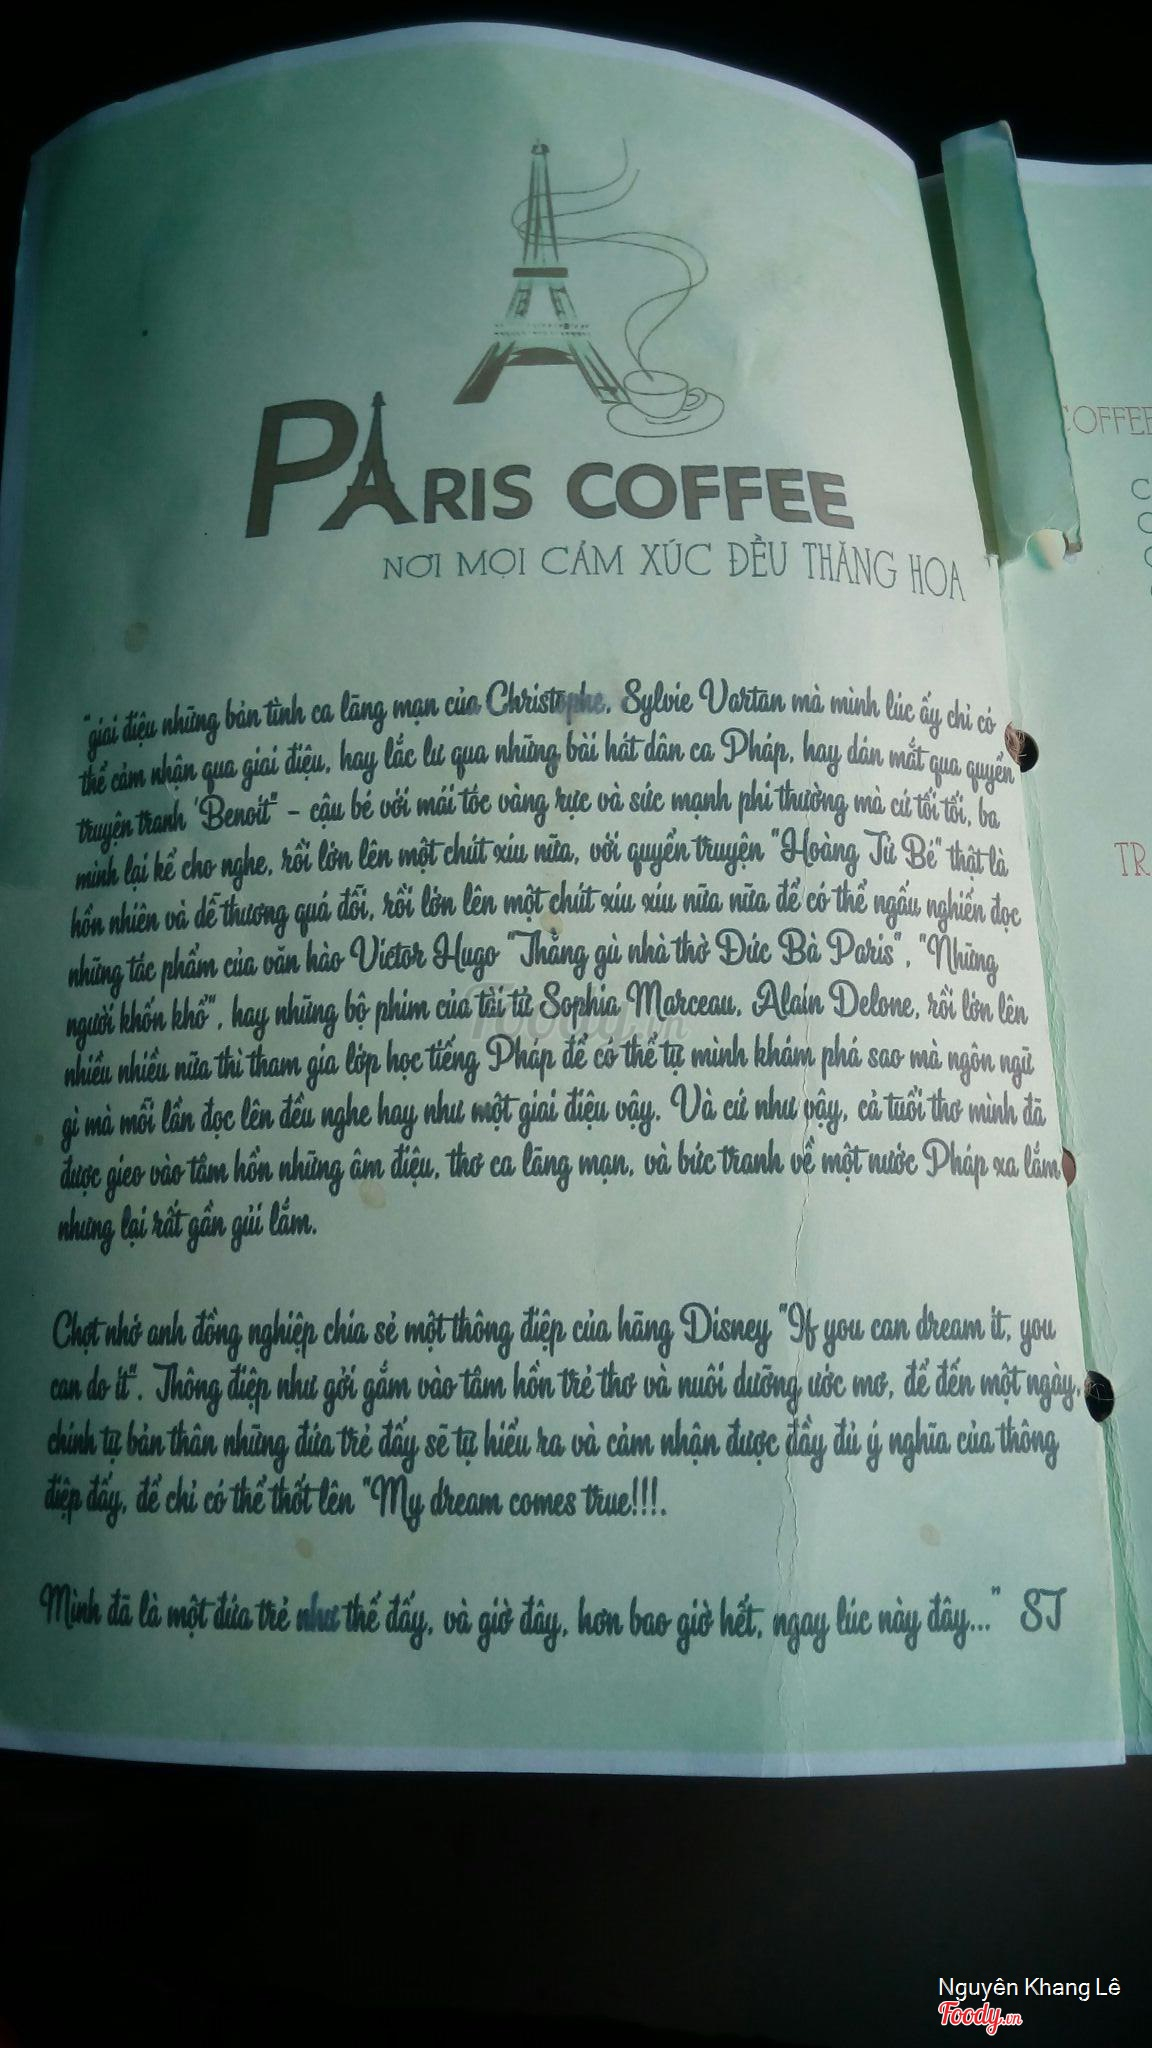 PARIS COFFEE
NƠI MỌI CẢM XÚC ĐỀU THĂNG HOA
COFFEE
"giai điệu những bản tình ca lãng mạn của Christophe, Sylvie Vartan mà mình lúc ấy chỉ có
thể cảm nhận qua giai điệu, hay lắc lư qua những bài hát dân ca Pháp, hay dán mắt qua quyển
truyện tranh 'Benoit" - cậu bé với mái tóc vàng rực và sức mạnh phi thường mà cứ tối tối, ba
mình lại kể cho nghe, rồi lớn lên một chút xíu nữa, với quyển truyện "Hoàng Tử Bé" thật là
hồn nhiên và dễ thương quá đỗi, rồi lớn lên một chút xíu xíu nữa nữa để có thể ngấu nghiến đọc
những tác phẩm của văn hào Victor Hugo "Thằng gù nhà thờ Đức Bà Paris", "Những
người khốn khổ", hay những bộ phim của tài tử Sophia Marceau, Alain Delone, rồi lớn lên
nhiều nhiều nữa thì tham gia lớp học tiếng Pháp để có thể tự mình khám phá sao mà ngôn ngữ
gì mà mỗi lần đọc lên đều nghe hay như một giai điệu vậy. Và cứ như vậy, cả tuổi thơ mình đã
được gieo vào tâm hồn những âm điệu, thơ ca lãng mạn, và bức tranh về một nước Pháp xa lắm
nhưng lại rất gần gũi lắm.
Chợt nhớ anh đồng nghiệp chia sẻ một thông điệp của hãng Disney "If you can dream it, you
can do it". Thông điệp như gởi gắm vào tâm hồn trẻ thơ và nuôi dưỡng ước mơ, để đến một ngày,
chính tự bản thân những đứa trẻ đấy sẽ tự hiểu ra và cảm nhận được đầy đủ ý nghĩa của thông
điệp đấy, để chỉ có thể thốt lên "My dream comes true!!!.
Mình đã là một đứa trẻ như thế đấy, và giờ đây, hơn bao giờ hết, ngay lúc này đây..." ST
TR
Foody.vn
Nguyên Khang Lê
Foody.vn